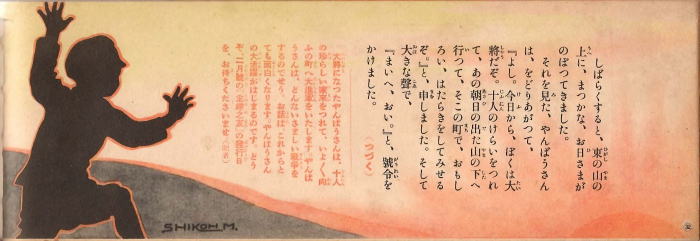 しばらくすると、東の山の
上に、まつかな、お日さまが
のぼつてきました。
それを見た、やんぱうさん
は、をどりあがつて、
『よし。今日から、ぼくは大
將だぞ。十人のけらいをつれ
て、あの朝日の出た山の下へ
行つて、そこの町で、おもし
ろい、はたらきをしてみせる
ぞ。』と、申しました。そして
大きな聲で、
『まいへ、おい。』と、號令を
かけました。
(つづく)
大將になつたやんぱうさんは、十人
の珍らしい家來をつれて、いよ〱向
ふの町へ大進軍をいたします。やんぱ
うさんは、どんないさましい戰爭を
するのでせう。お話は、これからと
ても面白くなります。やんぱうさん
の大活躍がはじまるのです。どう
ぞ、二月號の『
』の發行日
を、お待ちくださいませ。
SHIKOH M.